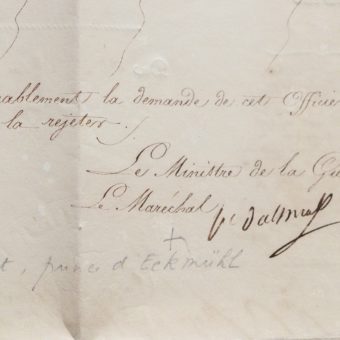 ablement la demande de cet Officie
la rejeter.
Le Ministre de la Gu
Le Maréchal
t, prince d'Eckmühl